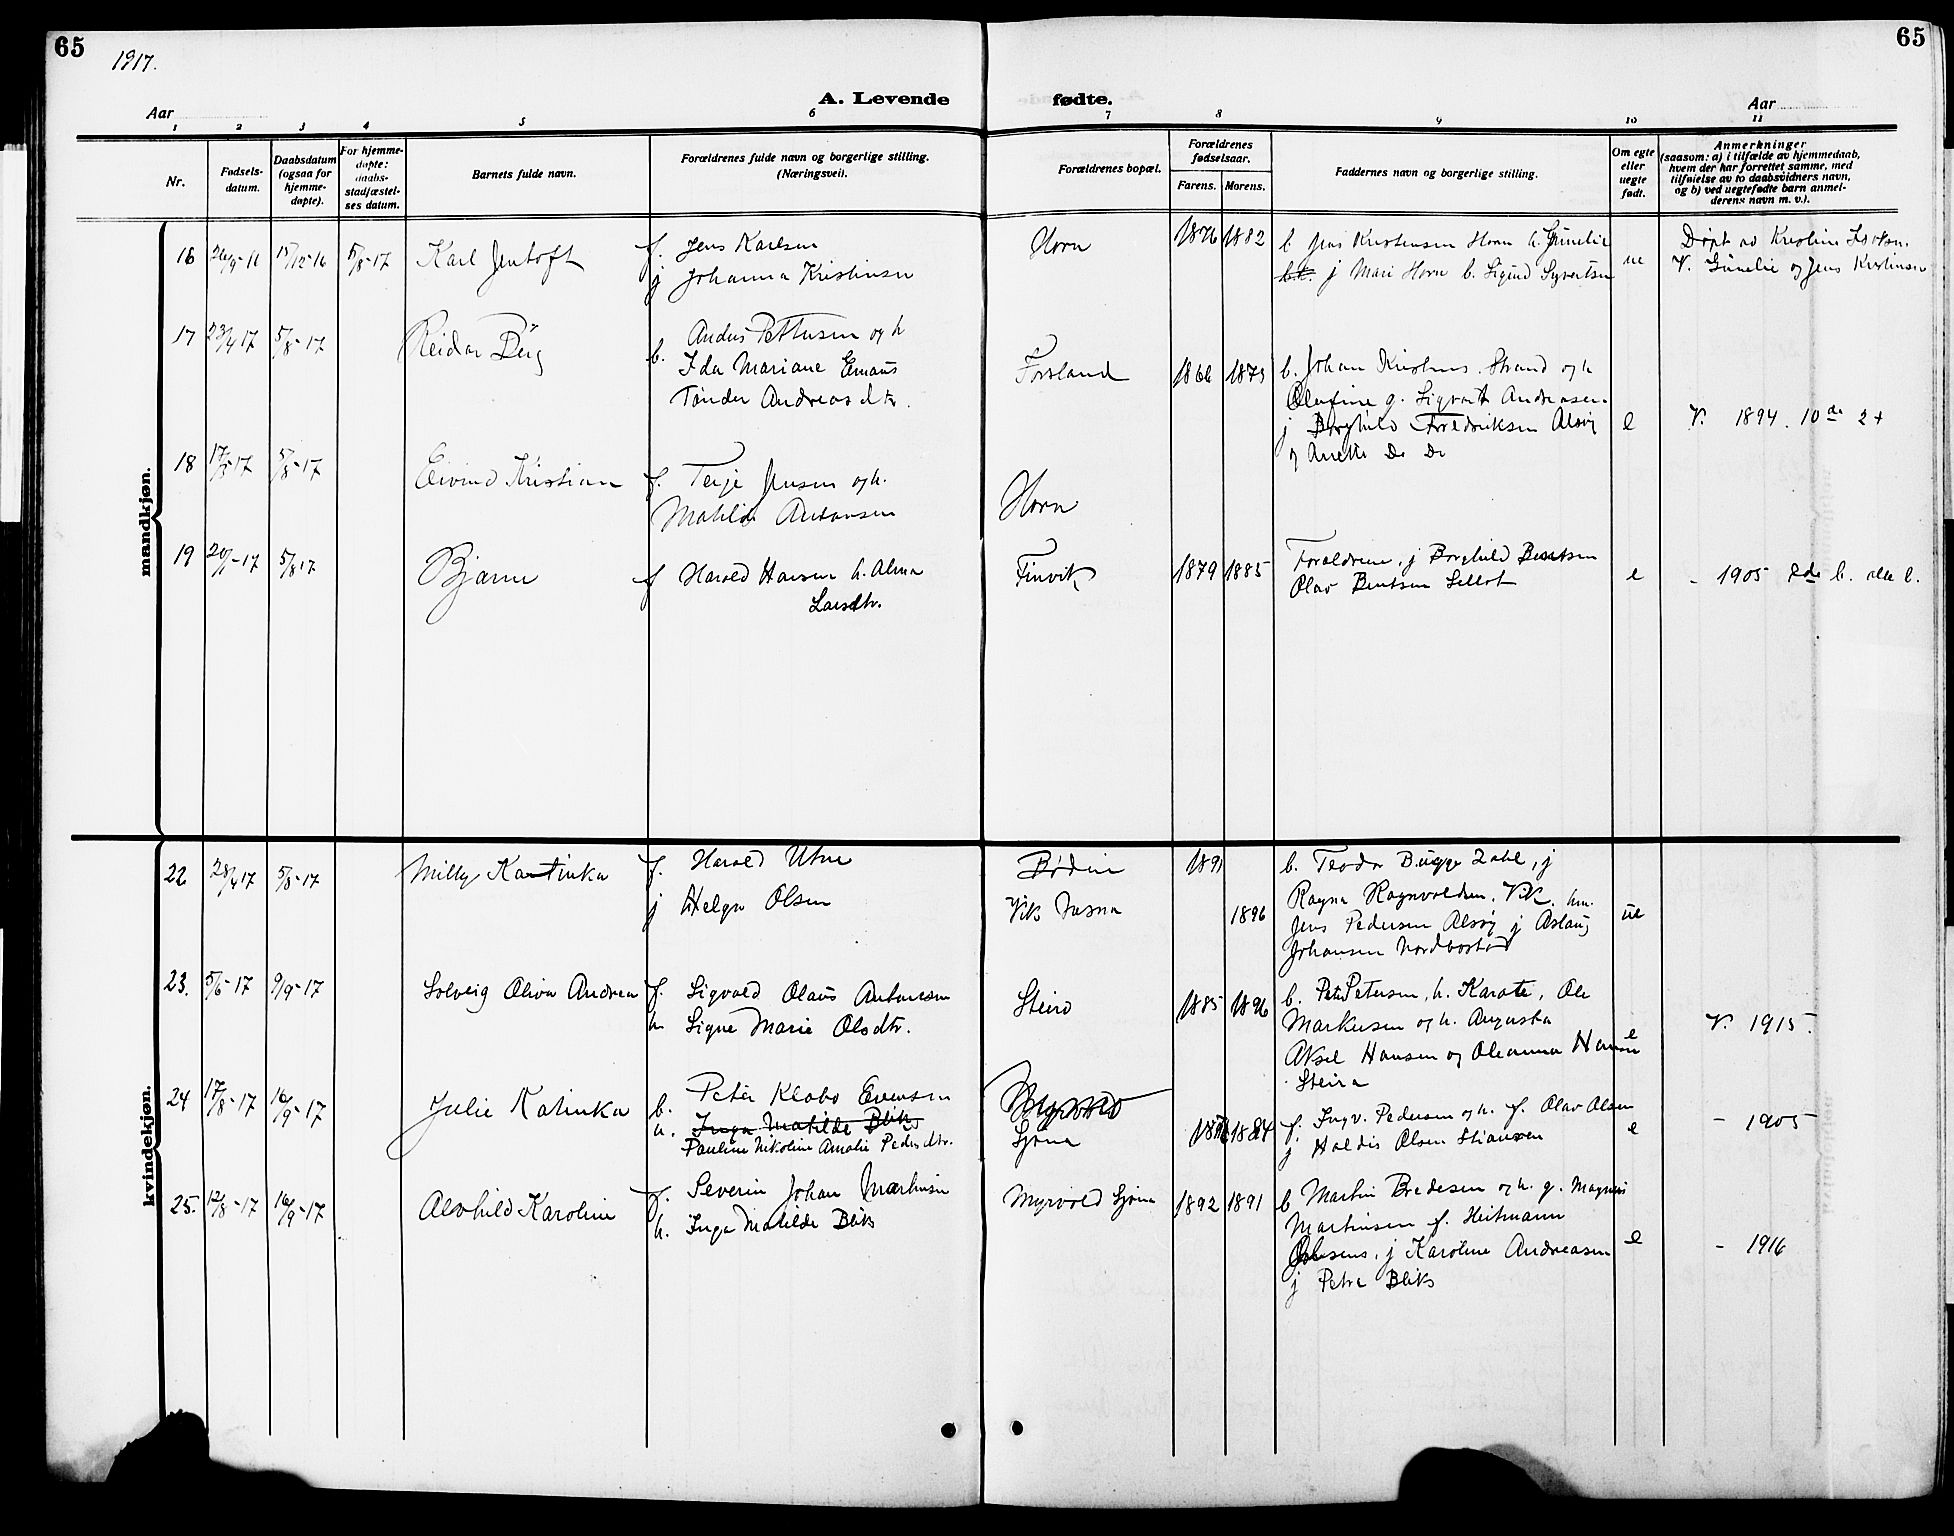 65
65
1917.
A. Levende fødte.
Aar
Aar
1 2 3 4 5 6 7 8 9 10 11
Nr.
Fødsels-
datum.
Daabsdatum
(ogsaa for
hjemme-
døpte).
For hjemme-
døpte:
daabs-
stadfæstel-
ses datum.
Barnets fulde navn.
Forældrenes fulde navn og borgerlige stilling.
(Næringsvei).
Forældrenes bopæl.
Forældrenes
fødselsaar.
Farens. Morens.
Faddernes navn og borgerlige stilling.
Om egte
eller
uegte
født.
Anmerkninger
(saasom: a) i tilfælde av hjemmedaab,
hvem der har forrettet samme, med
tilføielse av to daabsvidners navn,
og b) ved uegtefødte barn anmel-
derens navn m. v.).
mandkjøn.
16 26/9-16 15/12-16 5/8-17 Karl Jentoft
f. Jens Karlsen
j Johanna Kristinsen
Horn
1876 1882
b. Jens Kristensen Horn h. Gunelie
j Mari Horn b. Sigurd Syvertsen
ue
Døpt av Kristine
V. Gunelie og Jens Kristinsen
17 23/4 17 5/8-17 Reidar Berg
b. Anders Pettersen og h
Ida Mariane Emaus
Tønder Andreasdtr.
Forsland
1866 1873
b. Johan Strand og h
Olufine g. Sigvart Andreasen.
j Borghild Fredriksen Alsøy
og Anette Do Do
e
V. 1894. 10de 2+
18 17/5 17 5/8-17 Eivind Kristian
f. Terje Jensen og h.
Matilde Antonsen
Horn
19 5/8 17 Bjarne
f Harald Hansen h. Alma
Larsdtr.
Finvik
1879 1885
Forældrene, j Borghild Bentsen
Olav Bentsen
e
- 1905 b. b.
kvindekjøn.
22 28/4 17 5/8-17 Milly Kantinka
f. Harald Utne
j Helga Olsen
Bodin
Vik Nesna
1891
1896
b. Teodor Bugge Zahl, j
Ragna Ragnvaldsen. Vik. hm.
Jens Pedersen Alsøy j Aslaug
Johansen Nordbostad
ue
23. 5/6-17 9/9-17 Solveig Oliva Andrea
f. Sigvald Olaus Antonsen
h. Signe Marie Olsdtr.
Steiro
1885 1896
b. Peter Petersen, h. Karate, Ole
Markussen og h. Augusta
Aksel Hansen og Oleanna Hansen
Steira
e
V. 1915.
24 17/8-17 16/9-17 Julie Katinka
b. Peter Klabo Evensen
h. Inga Matilde Bliks
Pauline Nikoline Amalie Pedersdtr.
Myrvold
Sjona
1884
f. Ingv. Pedersen og h. f. Olav Olsen
j Haldis Olsen Stiansen
e
- 1905
25. 12/8-17 16/9-17 Alvhild Karoline
f. Severin Johan Martinsen
h. Inga Matilde Bliks
Myrvold Sjona
1892 1891
b Martin Bredesen og h. g. Magnus
Martinsen f. Heitmann
j Karoline Andreasen
j Petra Bliks
e
- 1916